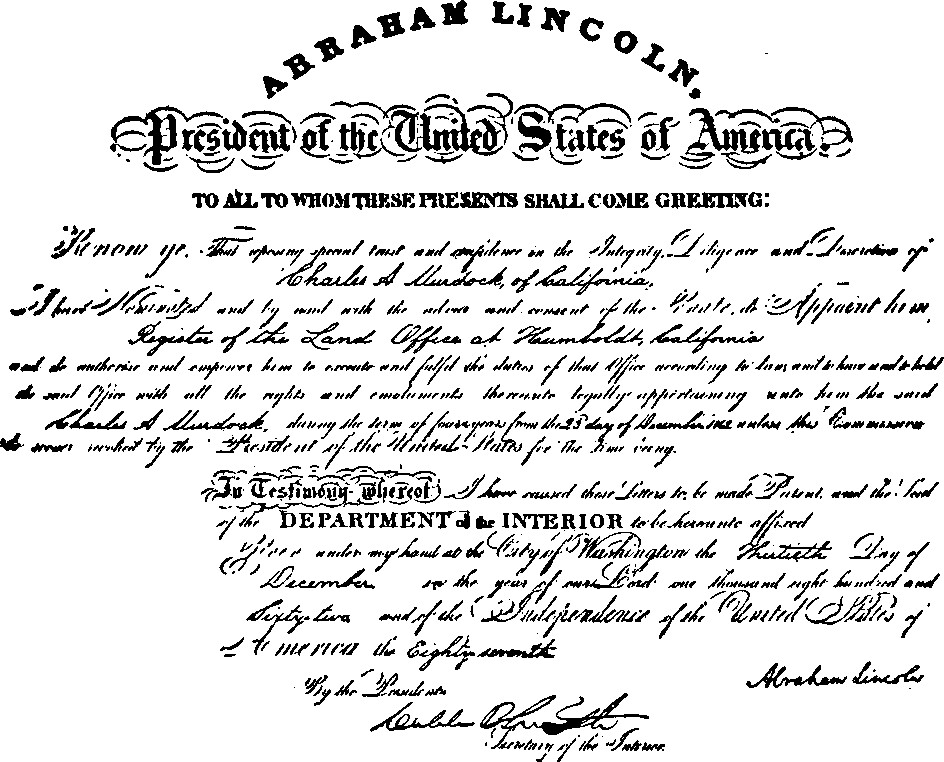 ABRAHAM LINCOLN.
President of the United States of America.
TO ALL TO WHOM THESE PRESENTS SHALL COME GREETING:
Know ye. That reposing special trust and confidence in the Integrity, Diligence and Discretion of
Charles A Murdock, of California,
I have Nominated and by and with the advice and consent of the Senate, do Appoint him,
Register of the Land Office at Humboldt, California
and do authorise and empower him to execute and fulfil the duties of that Office according to law, and to have and to hold
the said Office with all the rights and emoluments thereunto legally appertaining unto him the said
Charles A Murdock, during the term of four years from the 23 day of December 1862 unless this Commission
be sooner revoked by the President of the United States for the time being.
In Testimony whereof I have caused these Letters to be made Patent, and the Seal
of the DEPARTMENT of the INTERIOR to be hereunto affixed
Given under my hand at the City of Washington the Thirtieth Day of
December in the year of our Lord one thousand eight hundred and
Sixty-two and of the Independence of the United States of
America the Eighty seventh
By the President
Abraham Lincoln
Caleb B Smith
Secretary of the Interior.